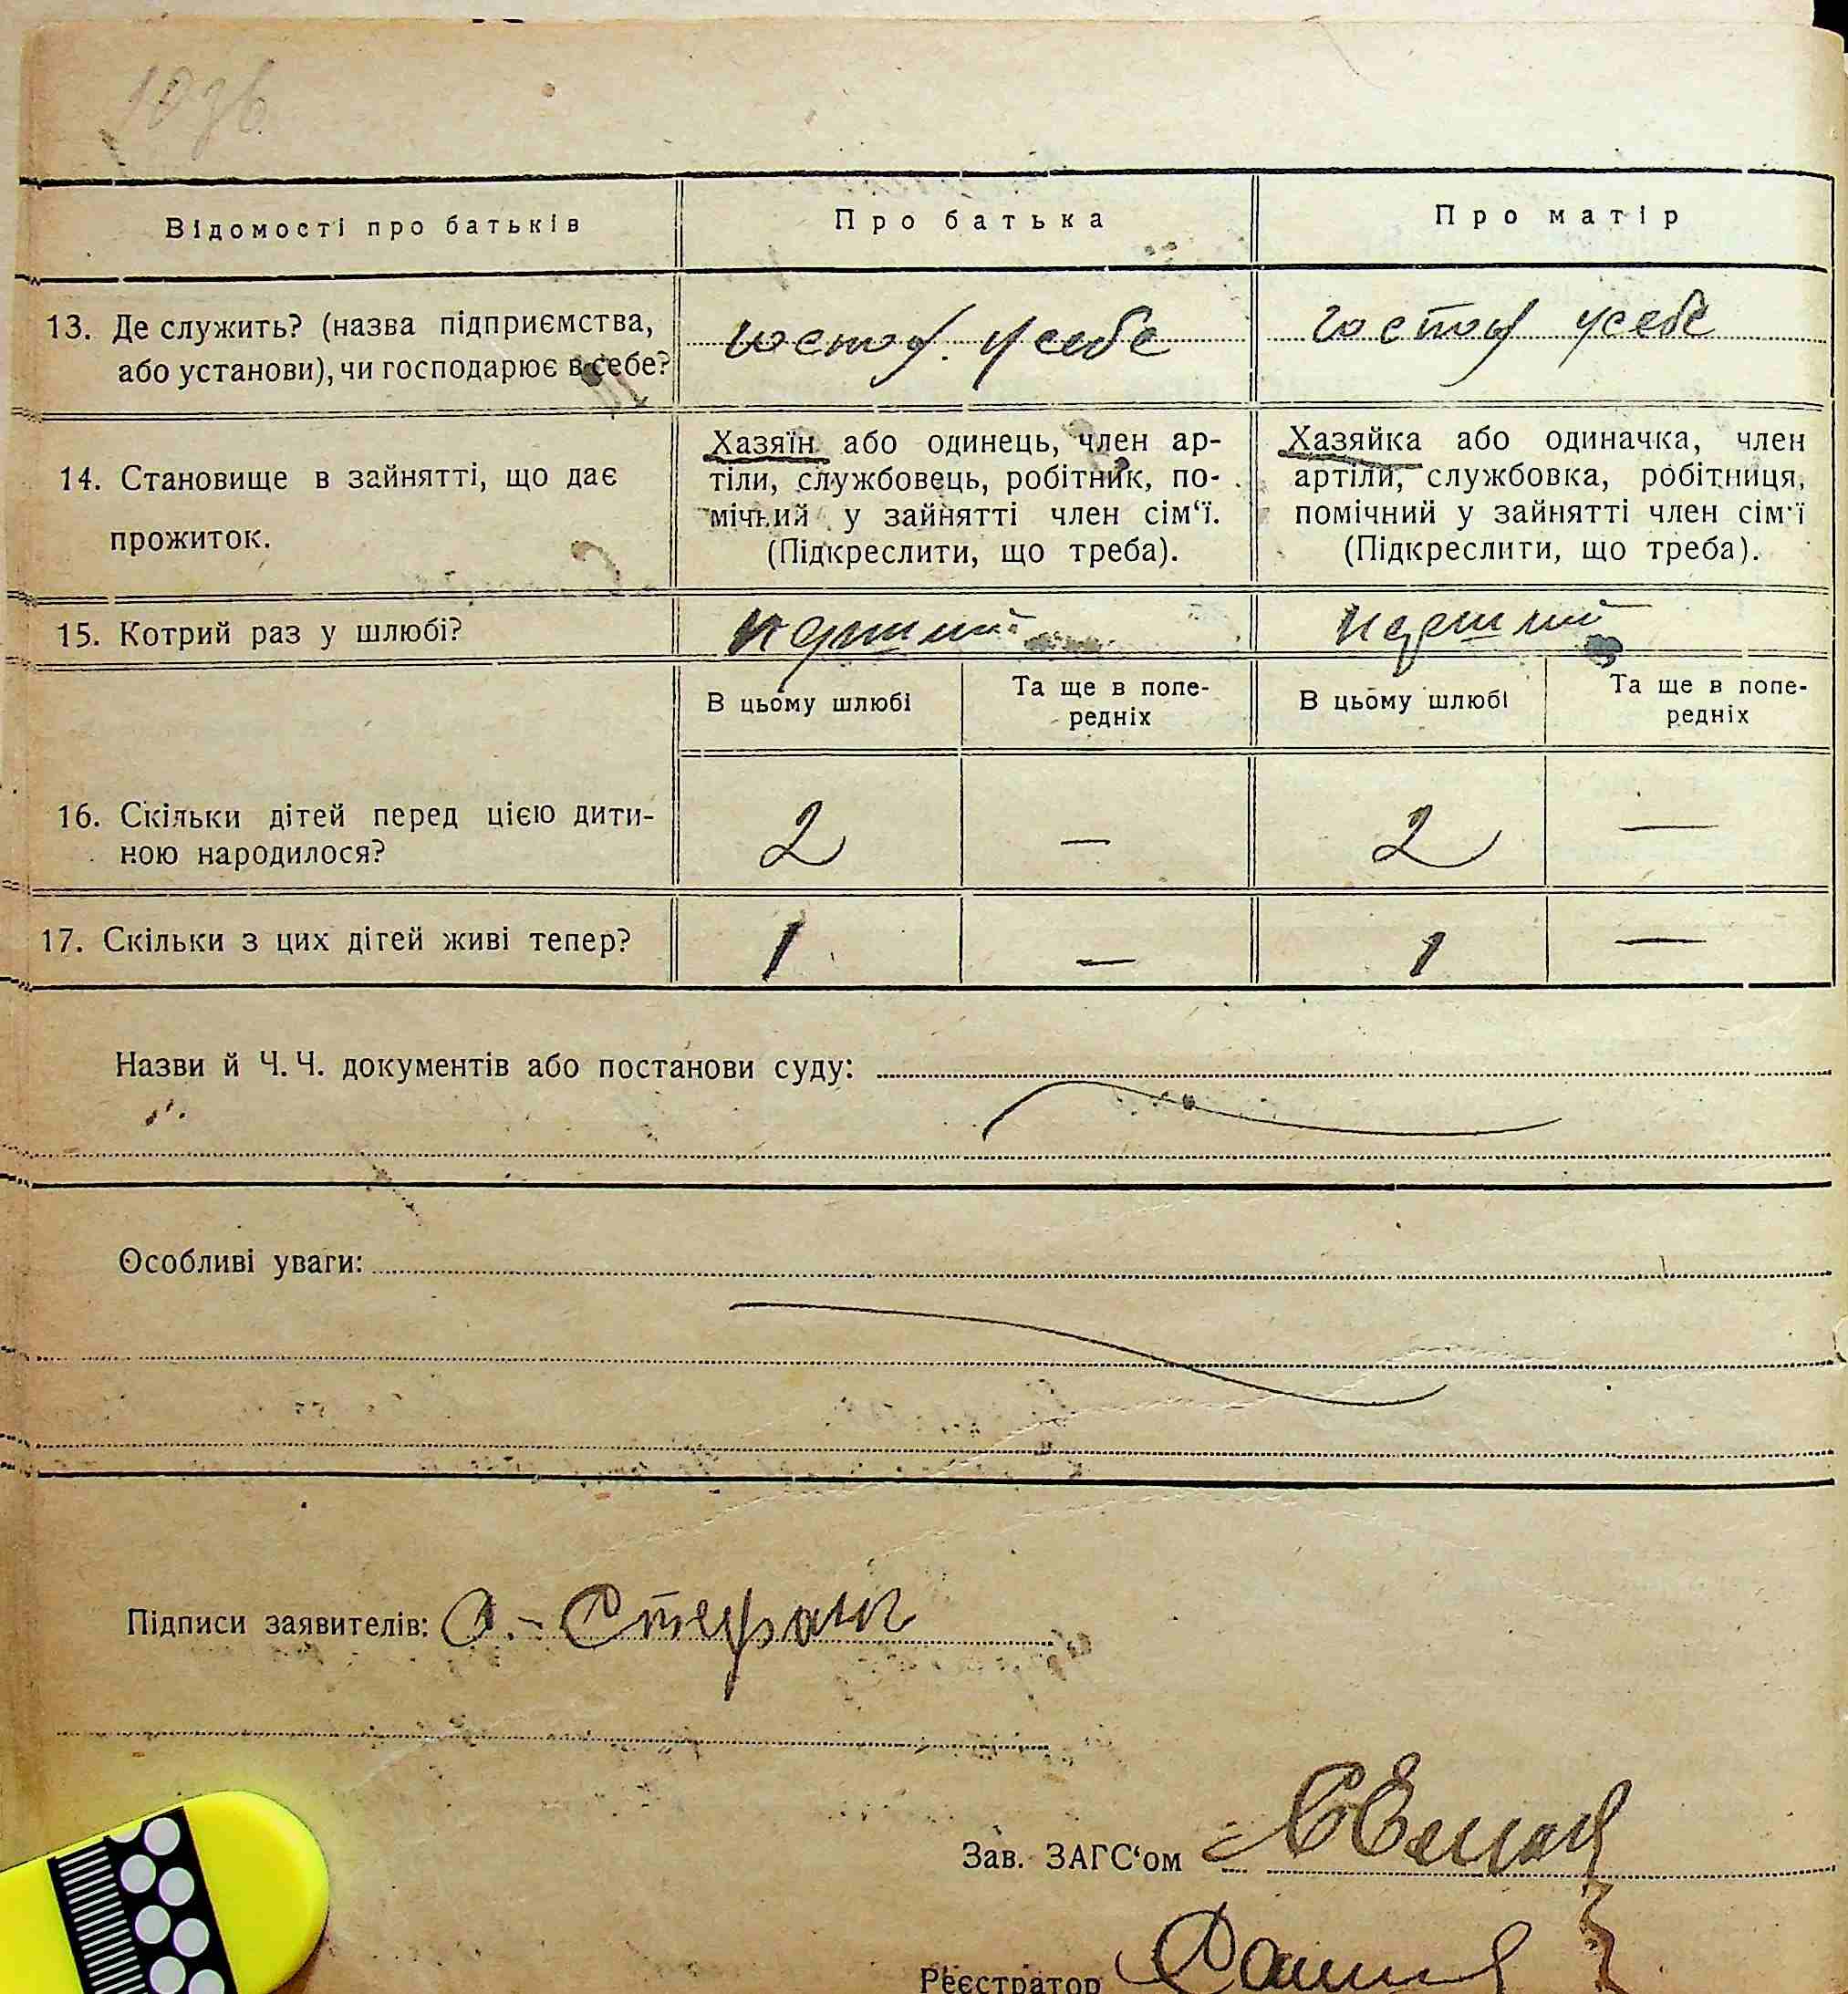 Відомості про батьків
Про батька
Про матір
13. Де служить? (назва підприємства,
або установи), чи господарює в себе?
господ. у себе
господ у себе
14. Становище в зайнятті, що дає
прожиток.
Хазяїн або одинець, член ар-
тіли, службовець, робітник, по-
мічний у зайнятті член сім‘ї.
(Підкреслити, що треба).
Хазяйка або одиначка, член
артіли, службовка, робітниця,
помічний у зайнятті член сім‘ї
(Підкреслити, що треба).
15. Котрий раз у шлюбі?
перший
перший
В цьому шлюбі
Та ще в попе-
редніх
В цьому шлюбі
Та ще в попе-
редніх
16. Скільки дітей перед цією дити-
ною народилося?
2
—
2
—
17. Скільки з цих дітей живі тепер?
1
—
1
—
Назви й Ч. Ч. документів або постанови суду:
Особливі уваги:
Підписи заявителів:
Зав. ЗАГС‘ом
Реєстратор